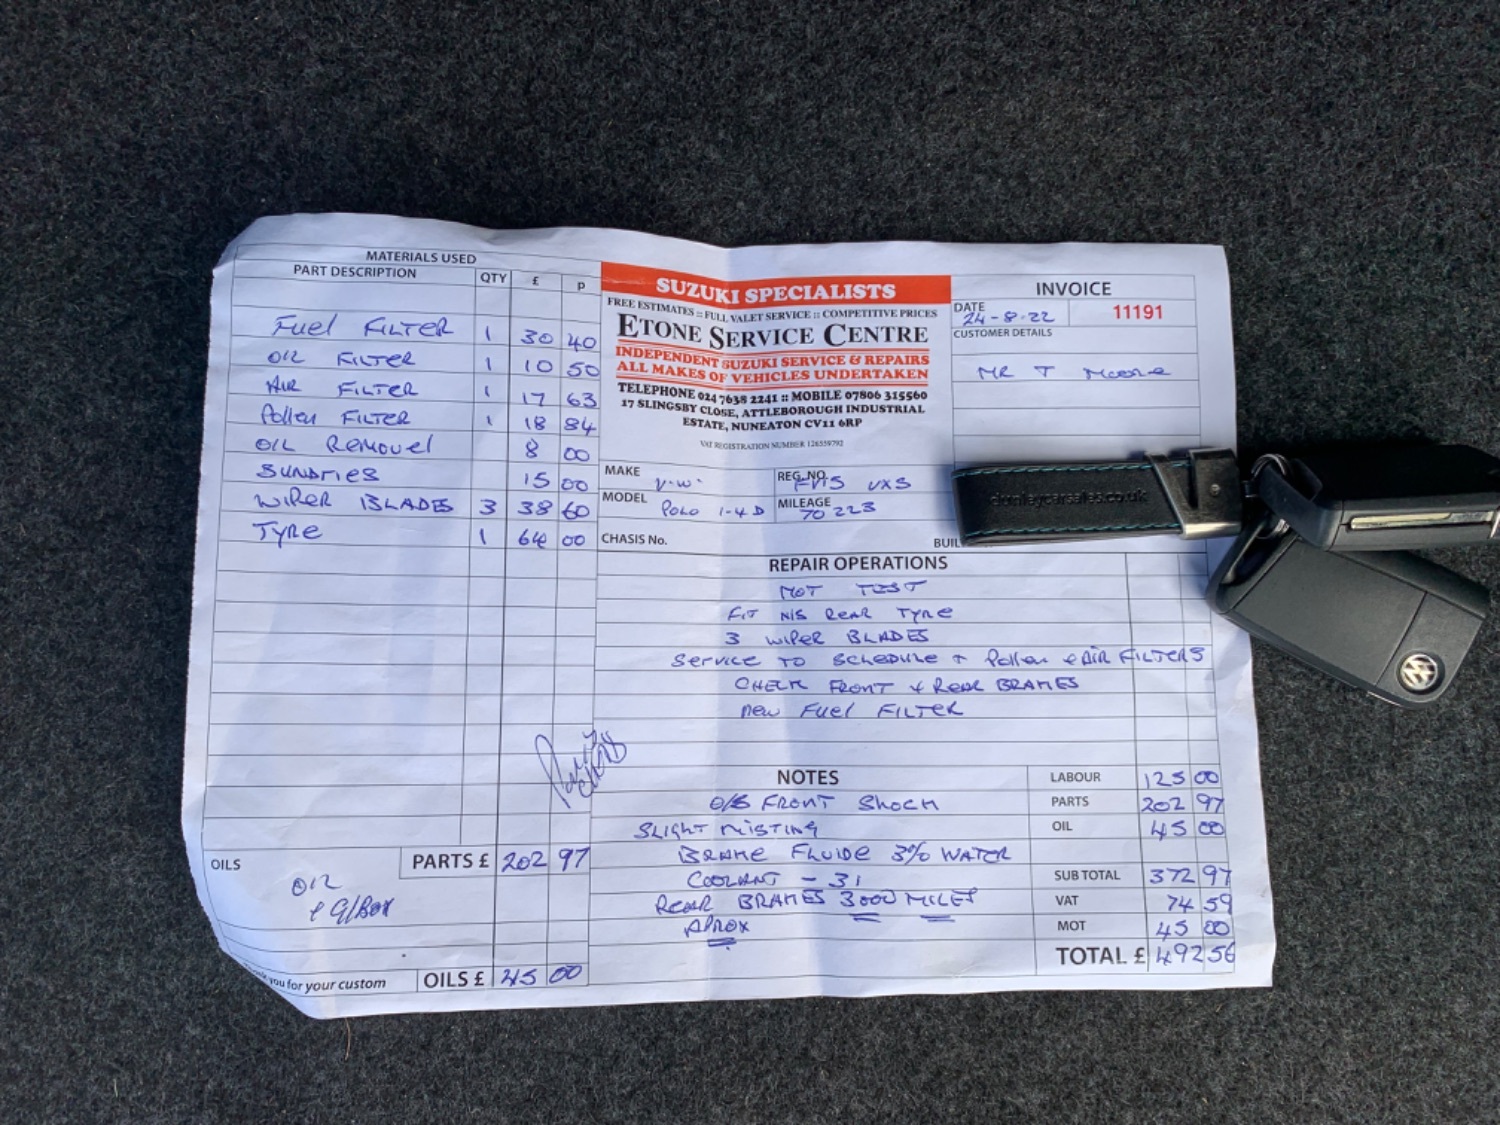 MATERIALS USED
PART DESCRIPTION QTY £ p
Fuel FILTER 1 30 40
OIL FILTER 1 10 50
AIR FILTER 1 17 63
Pollen FILTER 1 18 84
OIL Removel 8 00
SUNDRIES 15 00
WIPER BLADES 3 38 60
Tyre 1 64 00
PARTS £ 202 97
OILS
OIL
+ G/BOX
you for your custom
OILS £ 45 00
SUZUKI SPECIALISTS
FREE ESTIMATES :: FULL VALET SERVICE :: COMPETITIVE PRICES
ETONE SERVICE CENTRE
INDEPENDENT SUZUKI SERVICE & REPAIRS
ALL MAKES OF VEHICLES UNDERTAKEN
TELEPHONE 024 7638 2241 :: MOBILE 07806 315560
17 SLINGSBY CLOSE, ATTLEBOROUGH INDUSTRIAL
ESTATE, NUNEATON CV11 6RP
VAT REGISTRATION NUMBER 126559792
INVOICE
DATE 24-8-22 11191
CUSTOMER DETAILS
MR T Moore
MAKE V.W. REG. NO. VXS
MODEL Polo 1-4 D MILEAGE 70 223
CHASIS No. BUIL
REPAIR OPERATIONS
MOT TEST
FIT N/S REAR TYRE
3 WIPER BLADES
Service TO SCHEDULE + Pollen & AIR FILTERS
CHECK FRONT + Rear BRAKES
new Fuel FILTER
NOTES
O/S FRONT Shock
SLIGHT MISTING
BRAKE FLUIDE 3% WATER
COOLANT - 31
REAR BRAKES 3000 MILES
APROX
LABOUR 125 00
PARTS 202 97
OIL 45 00
SUB TOTAL 372 97
VAT 74 59
MOT 45 00
TOTAL £ 492 56
carsales.co.uk
VW